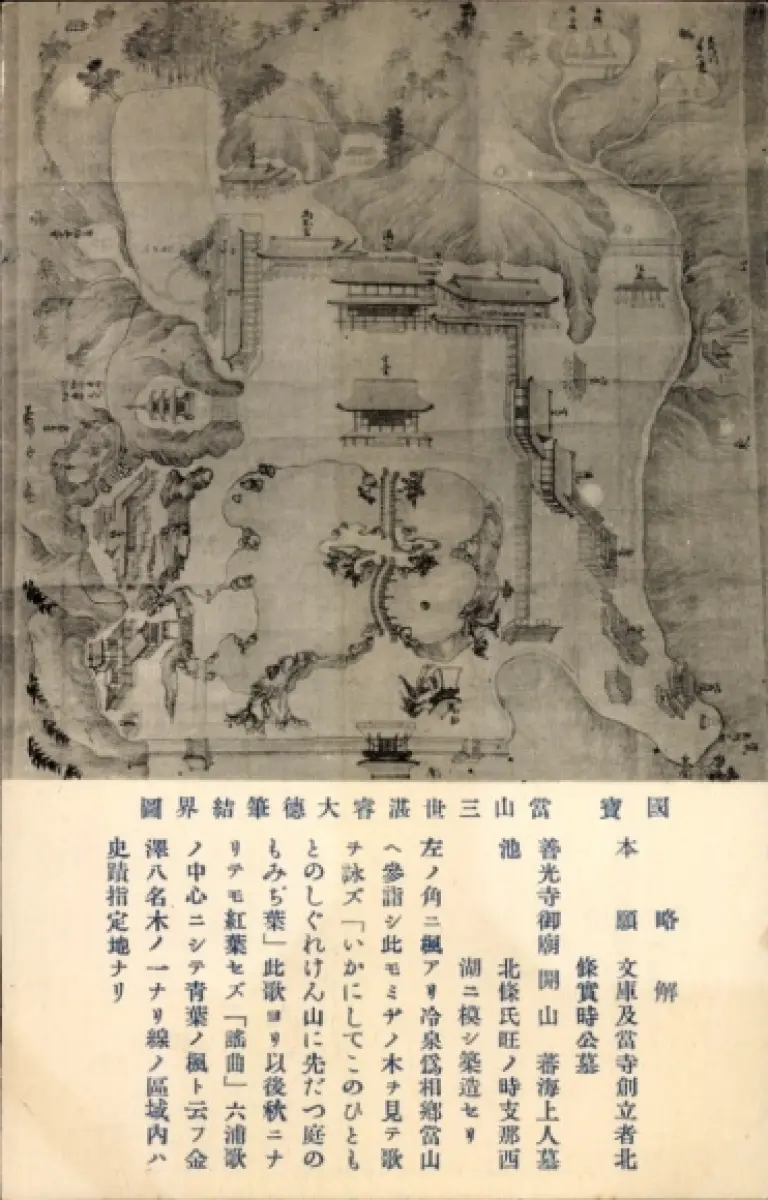 國寶　當山三世湛睿大德筆結界圖
略解
本願　文庫及當寺創立者北
條實時公墓
善光寺御廟　開山　審海上人墓
池　北條氏旺ノ時支那西
湖ニ模シ築造セリ
左ノ角ニ楓アリ冷泉爲相鄕當山
ヘ參詣シ此モミヂノ木ヲ見テ歌
ヲ詠ズ「いかにしてこのひとも
とのしぐれけん山に先だつ庭の
もみぢ葉」此歌ヨリ以後秋ニナ
リテモ紅葉セズ「謠曲」六浦歌
ノ中心ニシテ青葉ノ楓ト云フ金
澤八名木ノ一ナリ線ノ區域內ハ
史蹟指定地ナリ